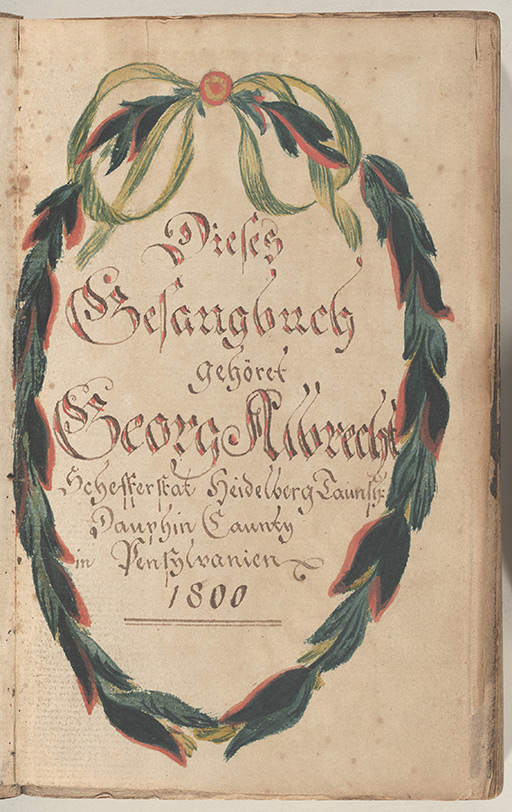 Dieses
Gesangbuch
gehöret
Georg Albrecht
Schefferstat Heidelberg Taunsh:
Dauphin Caunty
in Pensylvanien
1800